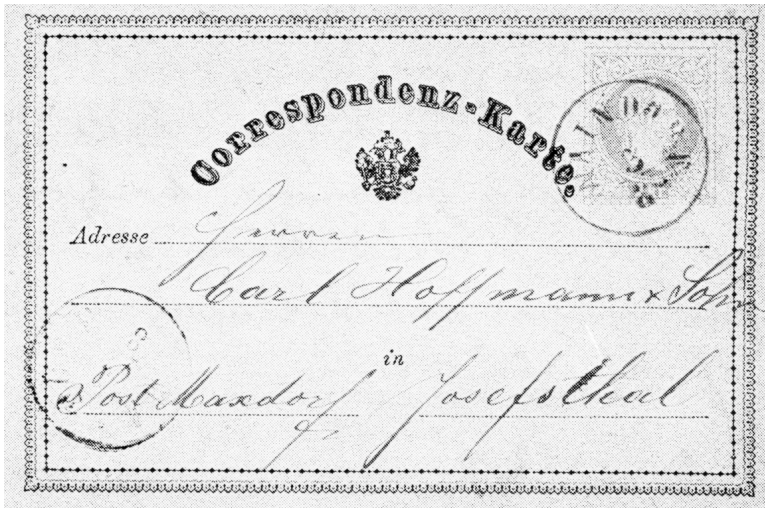 Correspondenz-Karte.
Adresse Herren
Carl Hoffmann & Sohn
in
Post Maxdorf Josefsthal